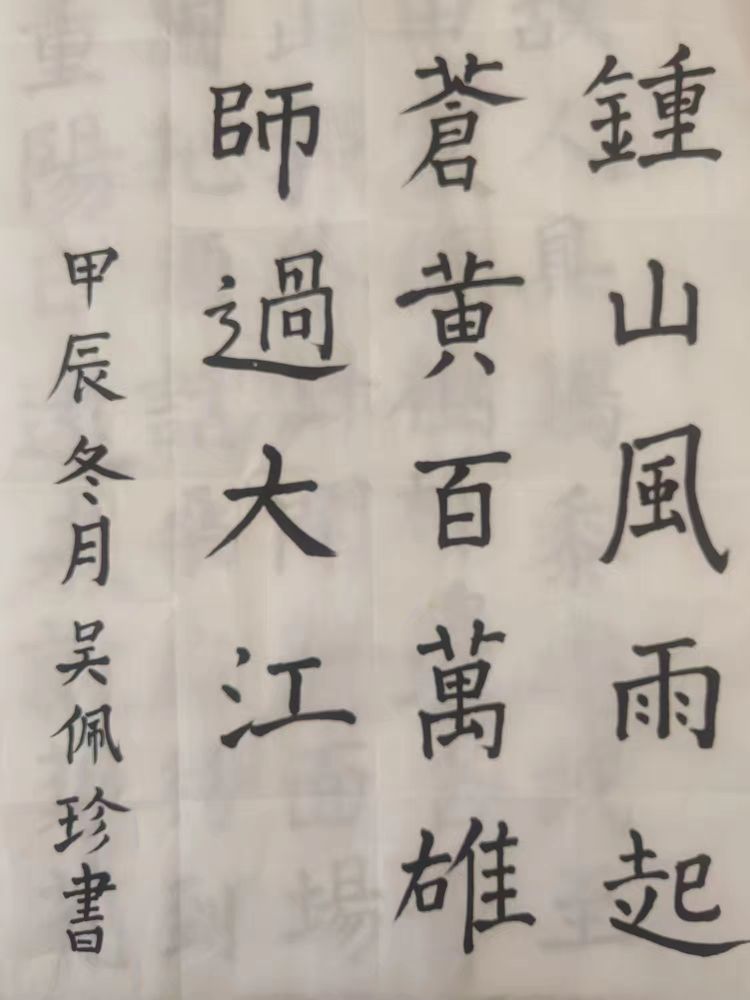 鍾山風雨起
蒼黄百萬雄
師過大江
甲辰冬月吴佩珍書